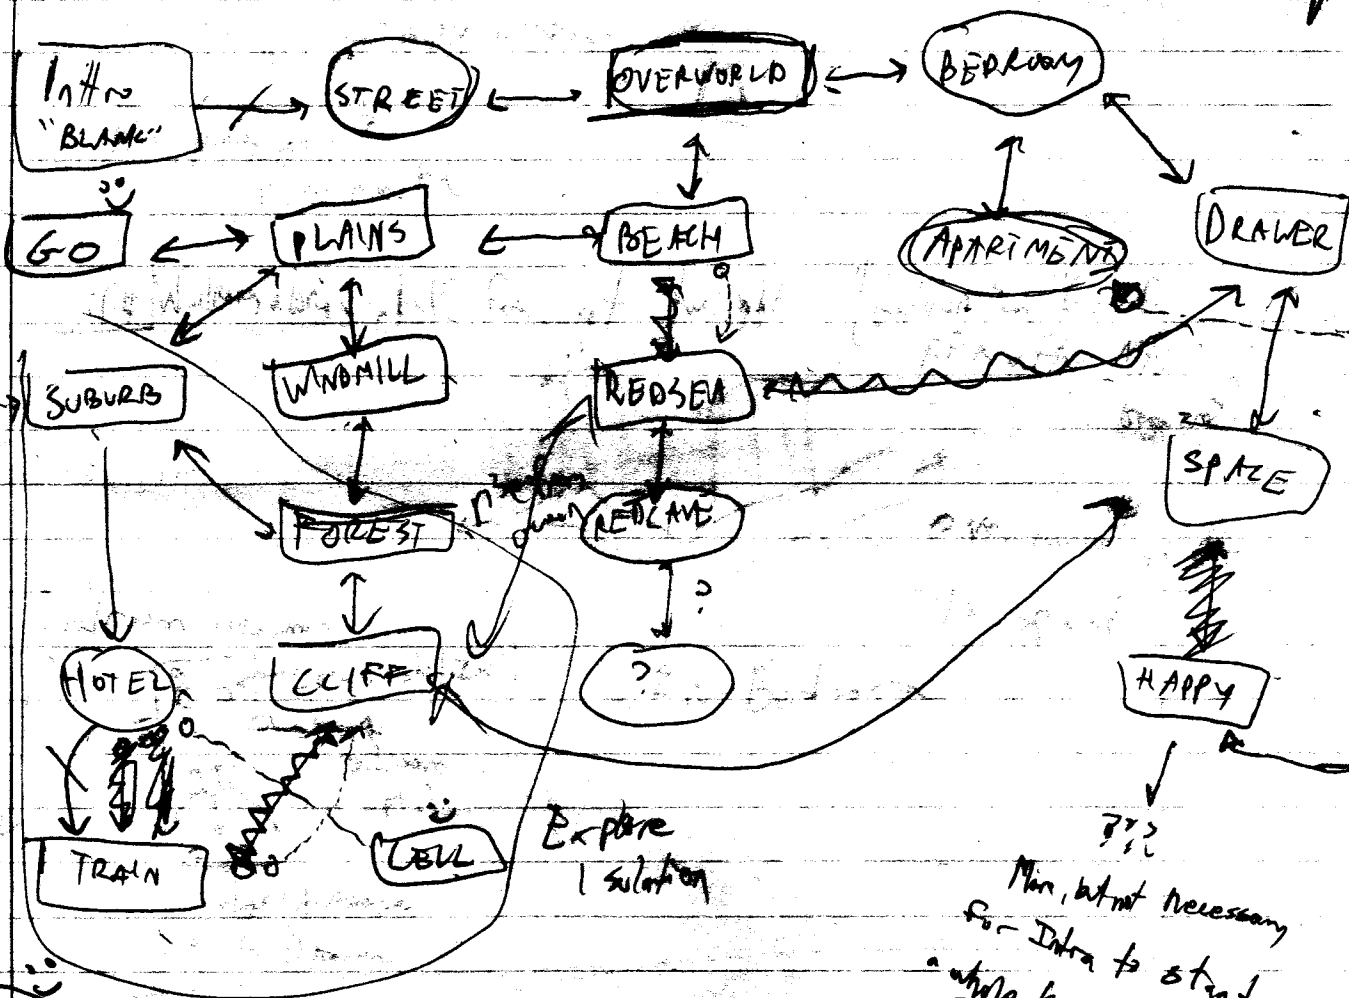 Intro
"BLANK"
STREET
OVERWORLD
BEDROOM
GO
PLAINS
BEACH
APARTMENT
DRAWER
SUBURB
WINDMILL
REDSEA
SPACE
FOREST
REDCAVE
?
HOTEL
CLIFF
?
HAPPY
TRAIN
CELL
Explore
Isolation
???
, but not necessary
for Intra to start